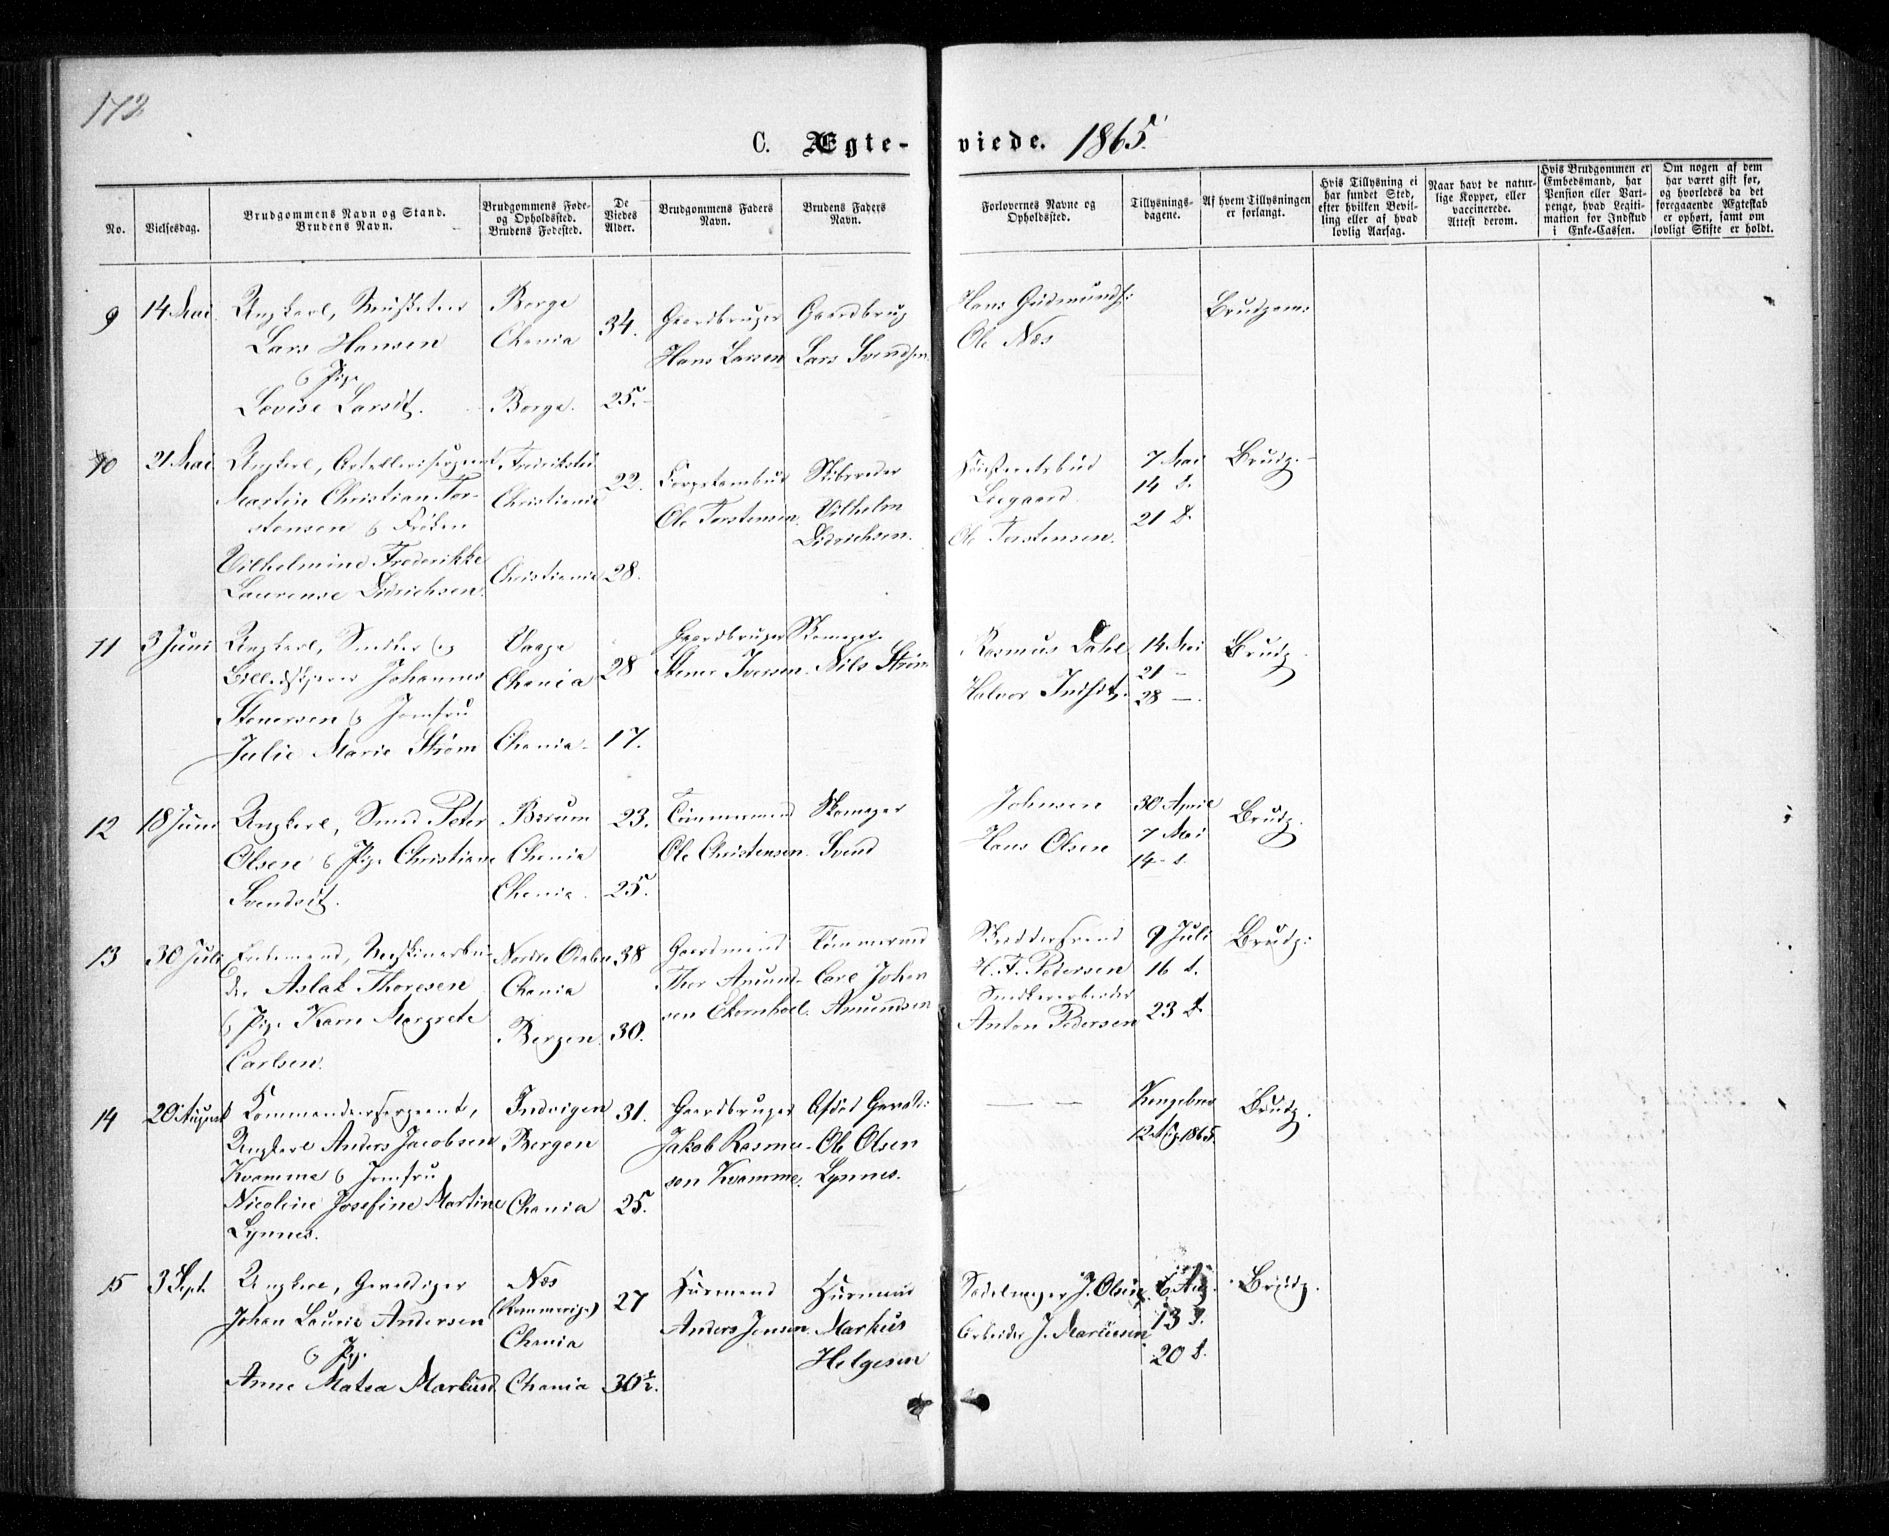 172
C. Ægte-viede. 1865.
No.
Vielsesdag.
Brudgommens Navn og Stand.
Brudens Navn.
BrudgommensFøde-
og Opholdssted.
Brudens Fødested.
De
Viedes
Alder.
Brudgommens Faders
Navn.
Brudens Faders
Navn.
Forlovernes Navne og
Opholdssted.
Tillysnings-
dagene.
Af hvem Tillysningen
er forlangt.
Hvis Tillysning ei
har fundet Sted,
efter hvilken Bevil-
ling eller af hvad
lovlig Aarsag.
Naar havt de natur-
lige Kopper, eller
vaccinerede.
Attest derom.
Hvis Brudgommen er
Embedsmand, har
Pension eller Vart-
penge, hvad Legiti-
mation for Indskud
i Enke-Cassen.
Om nogen af dem
har været gift før,
og hvorledes da det
foregaaende Ægteskab
er ophørt, samt om
lovligt Skifte er holdt.
9
14 Mai
Ungkarl, Musketeer
Lars Hansen
& Pige
Lovise Larsdt.
Borge
Chania
Borge.
34.
25.
Gaardbruger
Hans Larsen
Gaardbrug
Lars Svendsen
Hans Gudmunds:
Ole Næs
Brudgom:
10
21 Mai
Ungkarl, Artillerisergeant
Martin Christian Tor-
stensen & Frøken
Vilhelmine Frederikke
Laurense Didrichsen.
Fredriksta
Christiania
Christiania
22.
28.
Ole Torstensen.
Skibsreder
Vilhelm
Didrichsen.
Leegaard
Ole Torstensen.
7 Mai
14 d.
21 d.
Brudg.
11
3 Juni
Ungkarl, Snedker og
Billedskjærer Johannes
Stenersen & Jomfru
Julie Marie Strøm
Vaage
Chania
Chania
28
17.
Gaardbruger
Stener Iversen.
Skomager
Nils Strøm
Rasmus Dahl
Halvor
14 Mai
21 -
28 -
Brudg.
12
18 Juni
Ungkarl, Smed Peter
Olsen & Pige Christiane
Svendsdt.
Bærum
Chania
Chania.
23.
25.
Tømmermand
Ole Christensen.
Skomager
Svend
Johnsen
Hans Olsen
30 April
7 Mai
14 - d.
Brudg.
13
30 Juli
Enkemand, Maskinarbei
der Aslak Thoresen
& Pige Karn Margrete
Carlsen.
Nordre Odalen
Chania
Bergen.
38
30.
Gaardmand
Thor Amund-
sen Ekornhoel.
Tømmermd
Carl Johan
Amundsen
Skreddersvend
H. T. Pedersen
Snedkerarbeider
Anton Pedersen
9 Juli
16 d.
23 d.
Brudg:
14
20 August
Kommandersergeant,
Ungkarl Anders Jacobsen
Kvamme & Jomfru
Nicoline Josefine Martine
Lynnes.
Indvigen
Bergen
Chania
31.
25.
Gaardbruger
Jakob Rasmu-
sen Kvamme.
Ole Olsen
Lynnes.
— —
Kongebrev
12 Aug. 1865.
Brudg.
15
3 Sept.
Ungkarl, Gevaldiger
Johan Lauriz Andersen
& Pige
Anne Matea Markusd.
Næs
(Rommerige)
Chania
Chania
27
30½.
Husmand
Anders Jensen.
Husmand
Markus
Helgesen
Sadelmager J. Olsen
Arbeider J. Martinsen
6 Aug.
13 d.
20 d.
Brudg.